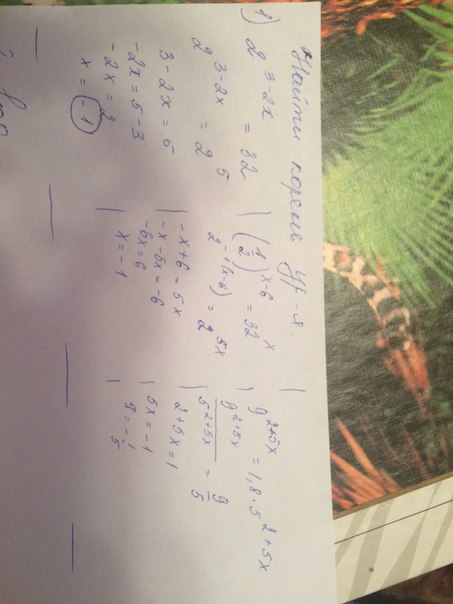 Найти корень ур-я.
1) 2^{3-2x} = 32
2^{3-2x} = 2^5
3-2x = 5
-2x = 5-3
-2x = 2
x = -1
(1/2)^{x-6} = 32^x
2^{-1(x-6)} = 2^{5x}
-x+6 = 5x
-x-5x = -6
-6x = 6
x = -1
9^{2+5x} = 1,8·5^{2+5x}
9^{2+5x}/5^{2+5x} = 9/5
2+5x = 1
5x = -1
x = -1/5